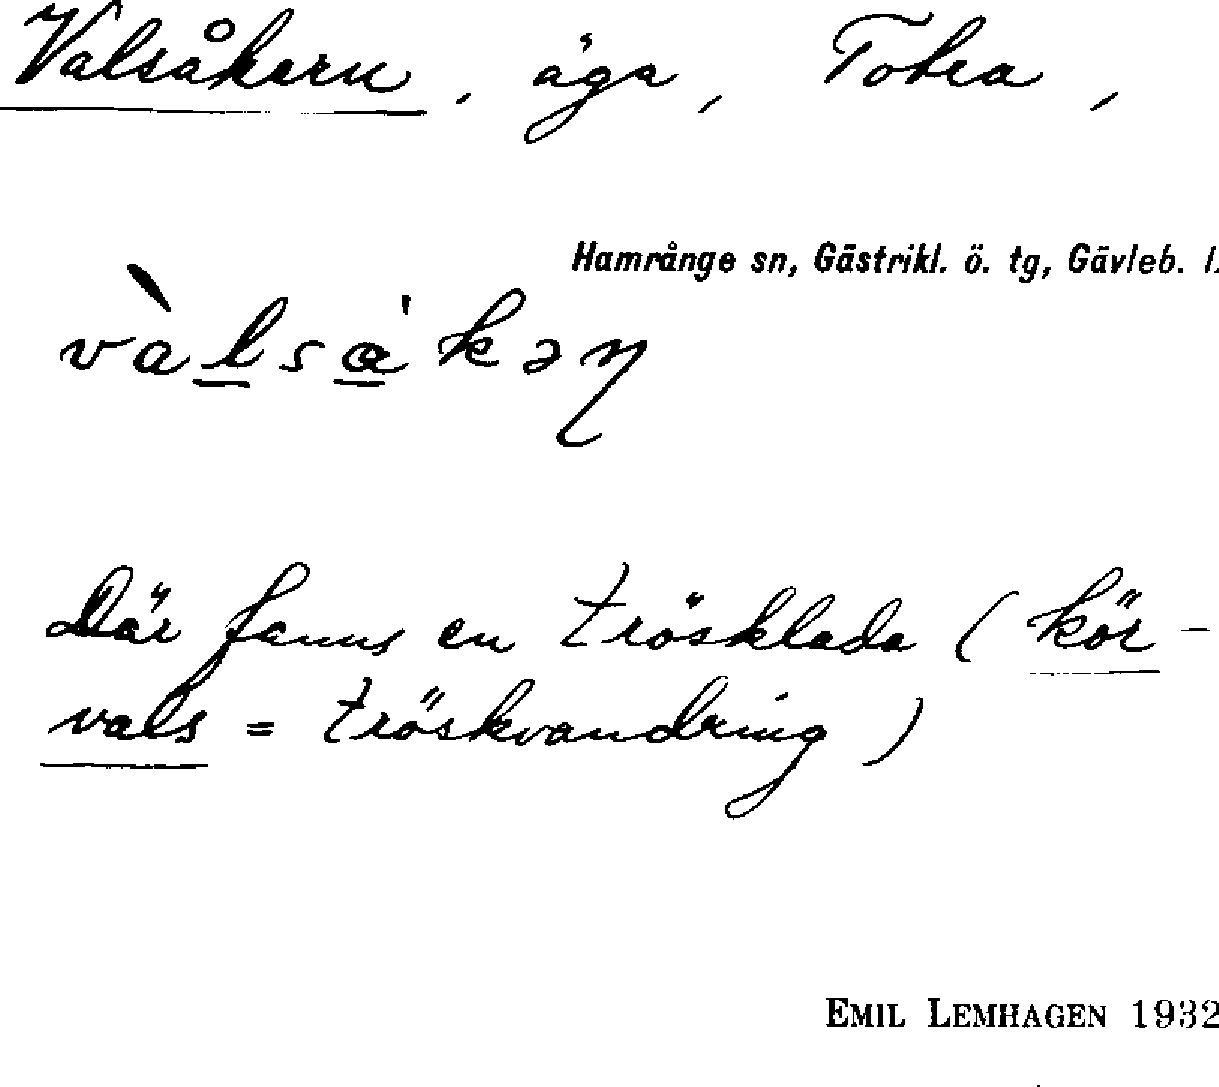 Valsåkern, äga, Tolea,
Hamrånge sn, Gästrikl. ö. tg, Gävleb. l.
vàlsa̍kəŋ
Där fanns en trösklada (kör-
vals = tröskvandring)
EMIL LEMHAGEN 1932